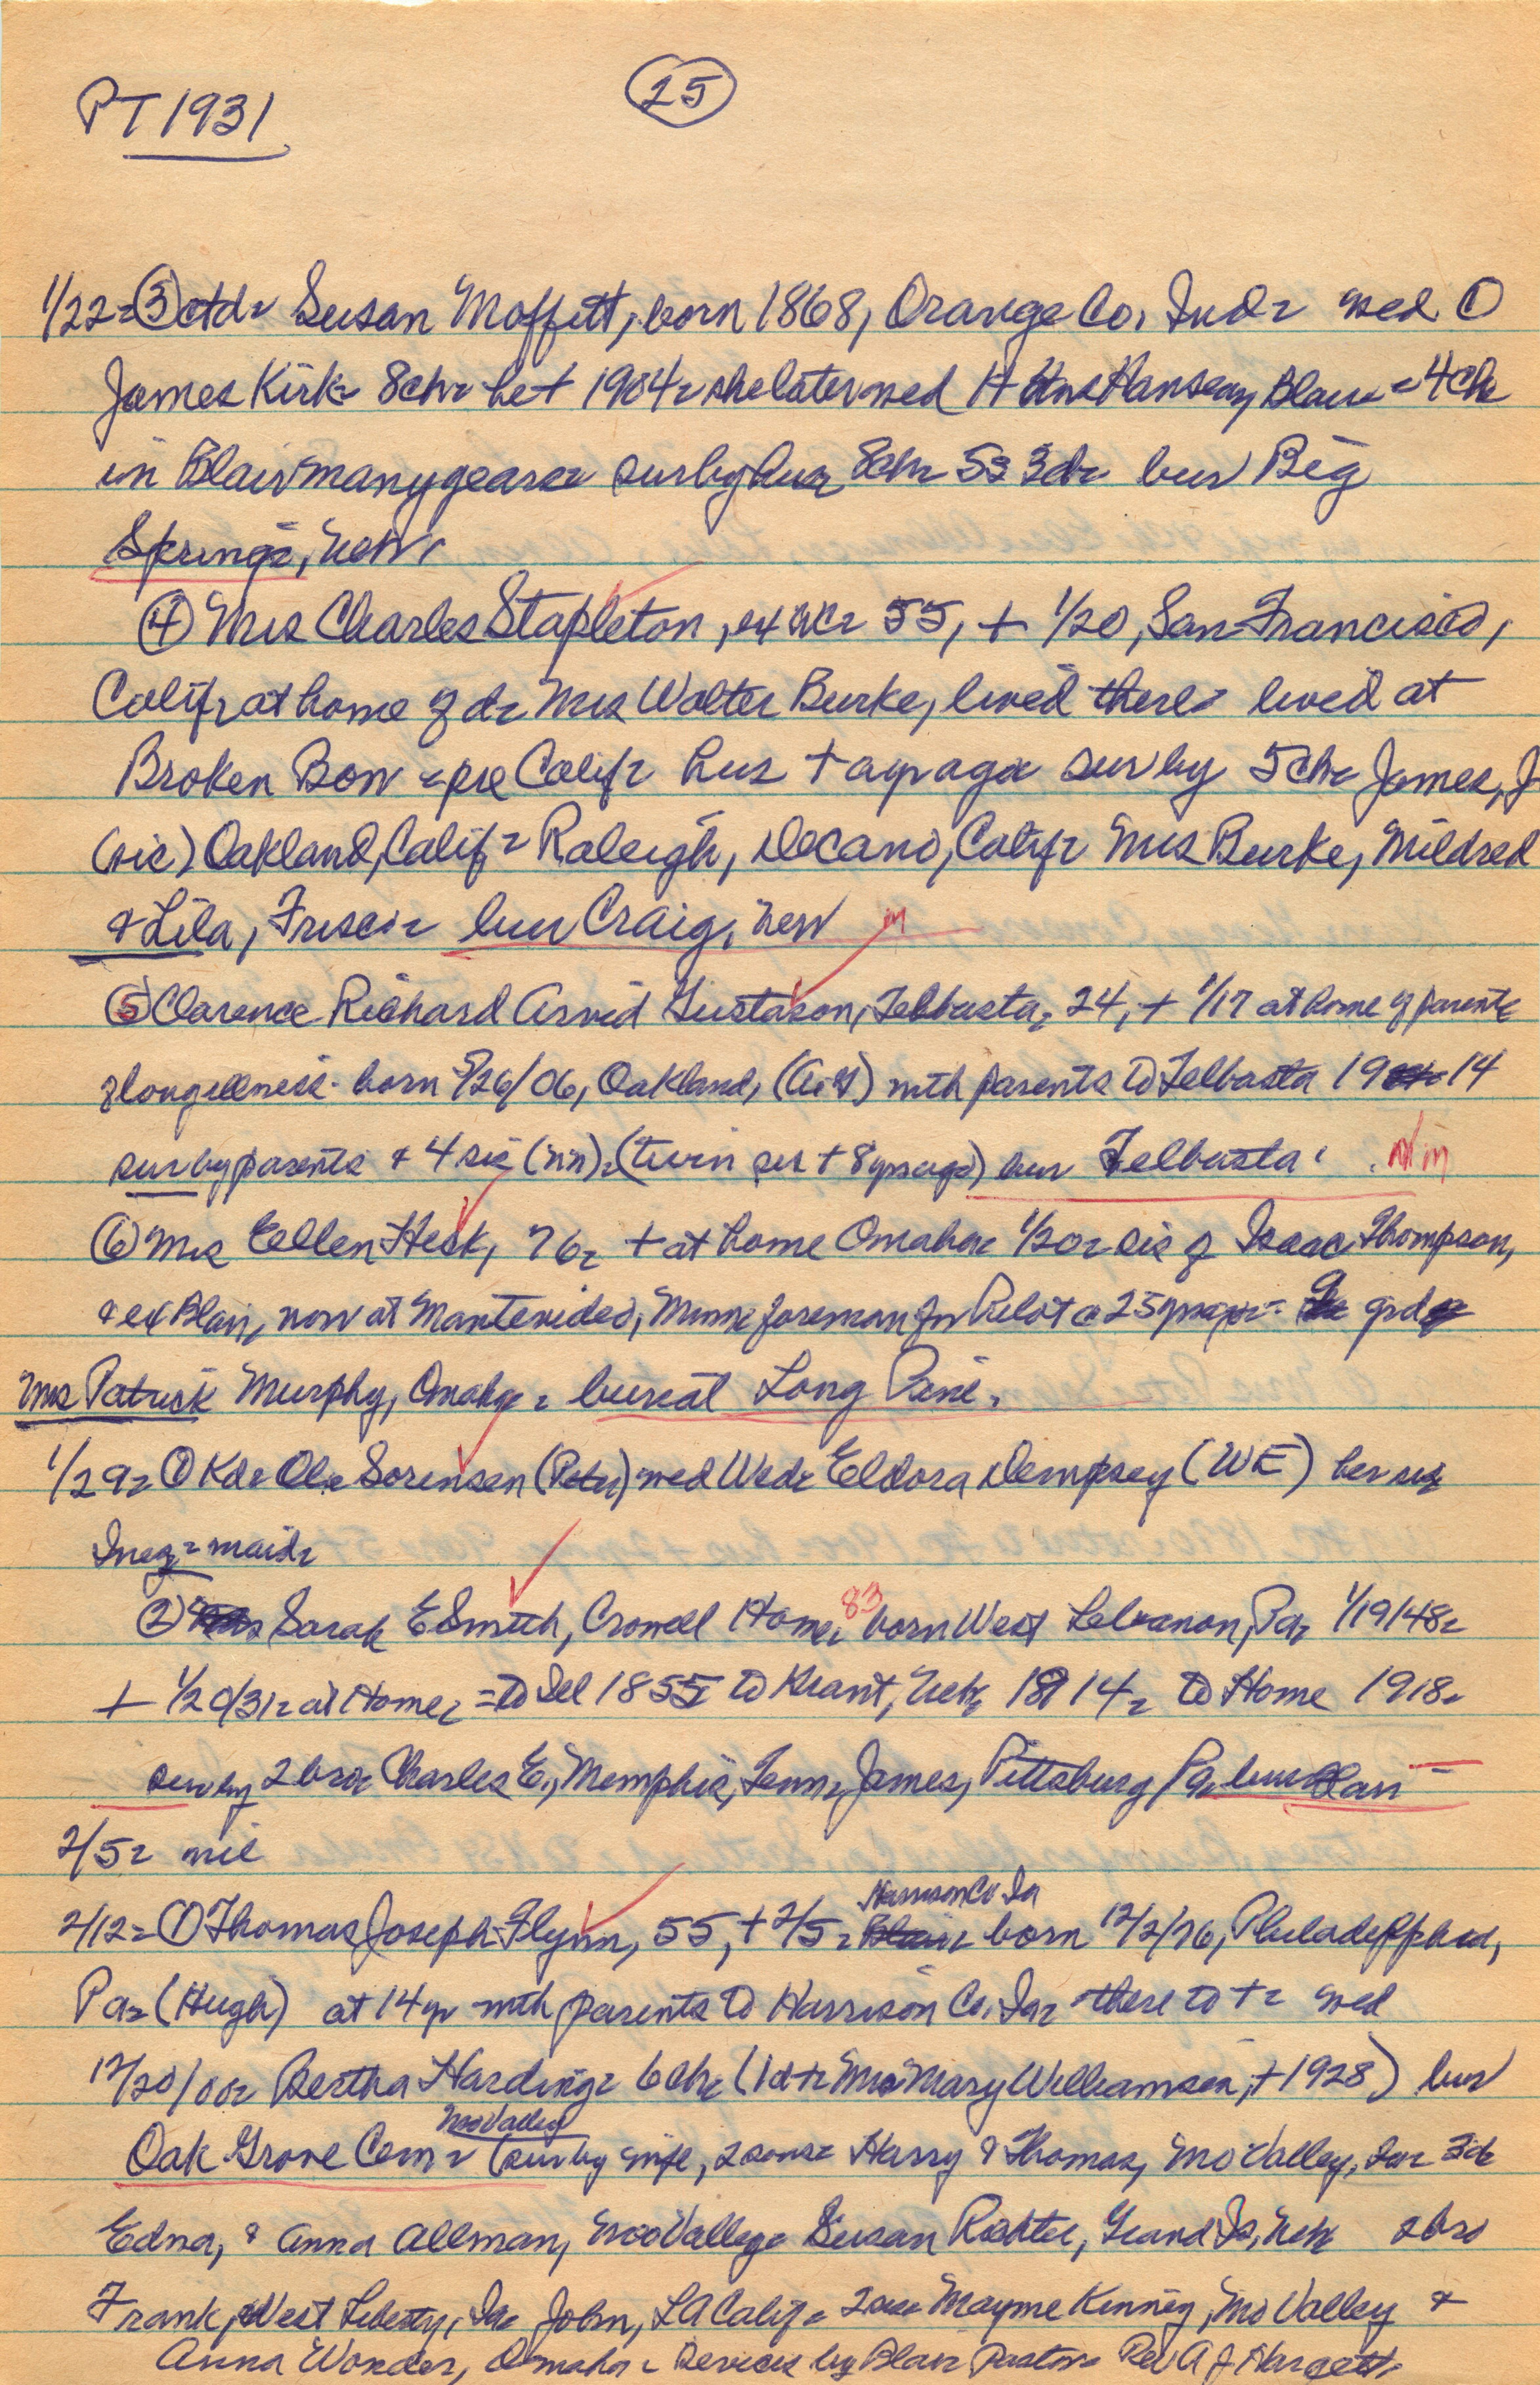 PT 1931
25
1/22 = (3) ctd = Susan Moffett, born 1868, Orange Co, Ind = wed (1)
James Kirk = 8ch = he + 1904 = she later wed H Hansen, Blair = 4ch
in Blair many years = sur by hus 8ch = 5s 3d = bur Big
Springs, Neb.
(4) Mrs Charles Stapleton, ex 55, + 1/20, San Francisco,
Calif, at home of d = Mrs Walter Burke, lived there = lived at
Broken Bow = pre Calif = hus + ayrago = sur by 5ch = James, J
(sic) Oakland, Calif = Raleigh, Decano, Calif = Mrs Burke, Mildred
& Lila, Frisco = bur Craig, Neb
(5) Clarence Richard Arvid Gustason, Telbasta, 24, + 1/17 at home of parents
of long illness. born 5/26/06, Oakland, (Aug) with parents to Telbasta 19 14
sur by parents & 4 sis (nn) = (twin sis + 8yrs ago) bur Telbasta
(6) Mrs Ellen Hesk, 76 = + at home Omaha = 1/20 = sis of Isaac Thompson,
& ex Blair, now at Montevideo, Minn foreman for Pilot c 25 yrs ago = grd
Mrs Patrick Murphy, Omaha = burial Long Pine.
1/29 = (1) Kd = Ole Sorensen (Peter) wed Wed = Eldora Dempsey (WE) her sis
Inez = maid =
(2) Sarah E Smith, Crowell Home, 83 born West Lebanon, Pa, 1/19/48 =
+ 1/20/31 = at Home = to Ill 1855 to Neb, 1914 = to Home 1918 =
sur by 2 bro = Charles E., Memphis, Tenn = James, Pittsburg Pa = bur Blair =
2/5 = nil
2/12 = (1) Thomas Joseph Flynn, 55, + 2/5 = Blair Harrison Co Ia born 12/2/76, Philadelphia,
Pa = (Hugh) at 14 yr with parents to Harrison Co, Ia = there to + = wed
12/20/00 = Bertha Harding = 6ch = (1d + = Mrs Mary Williamson, + 1928) bur
Oak Grove Cem = Mo Valley (sur by wife, 2 sons = Harry & Thomas, Mo Valley, Ia = 3d =
Edna, & Anna Allman, Mo Valley = Susan Richter, Grand Is, Neb 2 bro
Frank, West Liberty, Ia = John, LA Calif = 2 sis = Mayme Kinney, Mo Valley &
Anna Wonder, Omaha = services by Blair Pastor = Rev A J Hargett =